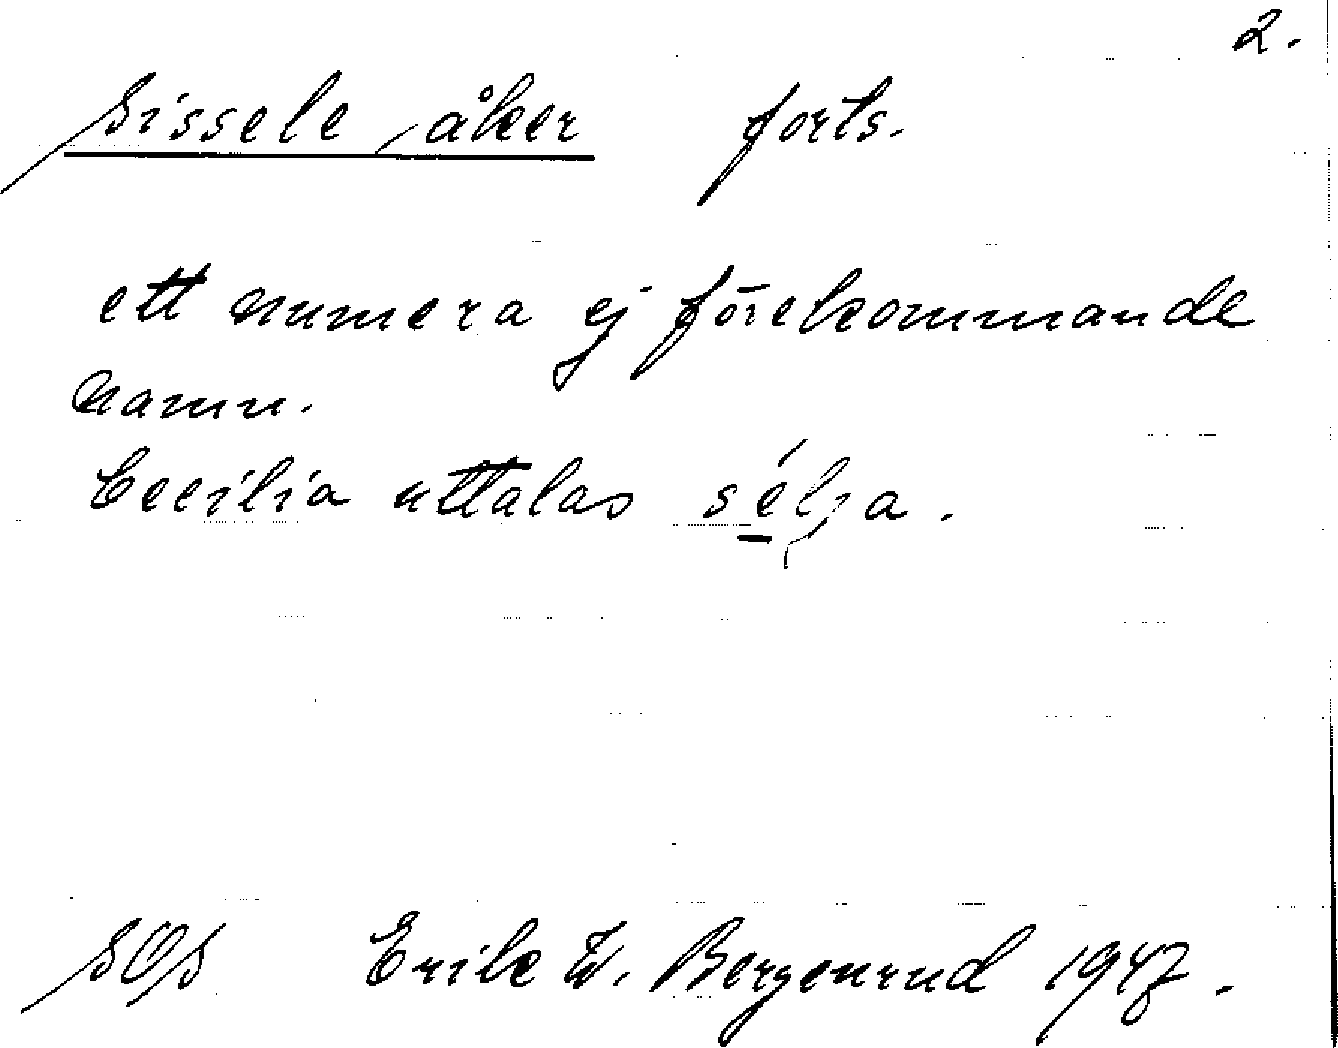 2.
Sissele, åker forts.
ett numera ej förekommande
namn.
Cecilia uttalas sélja.
SOS Erik W. Bergenrud 1947.